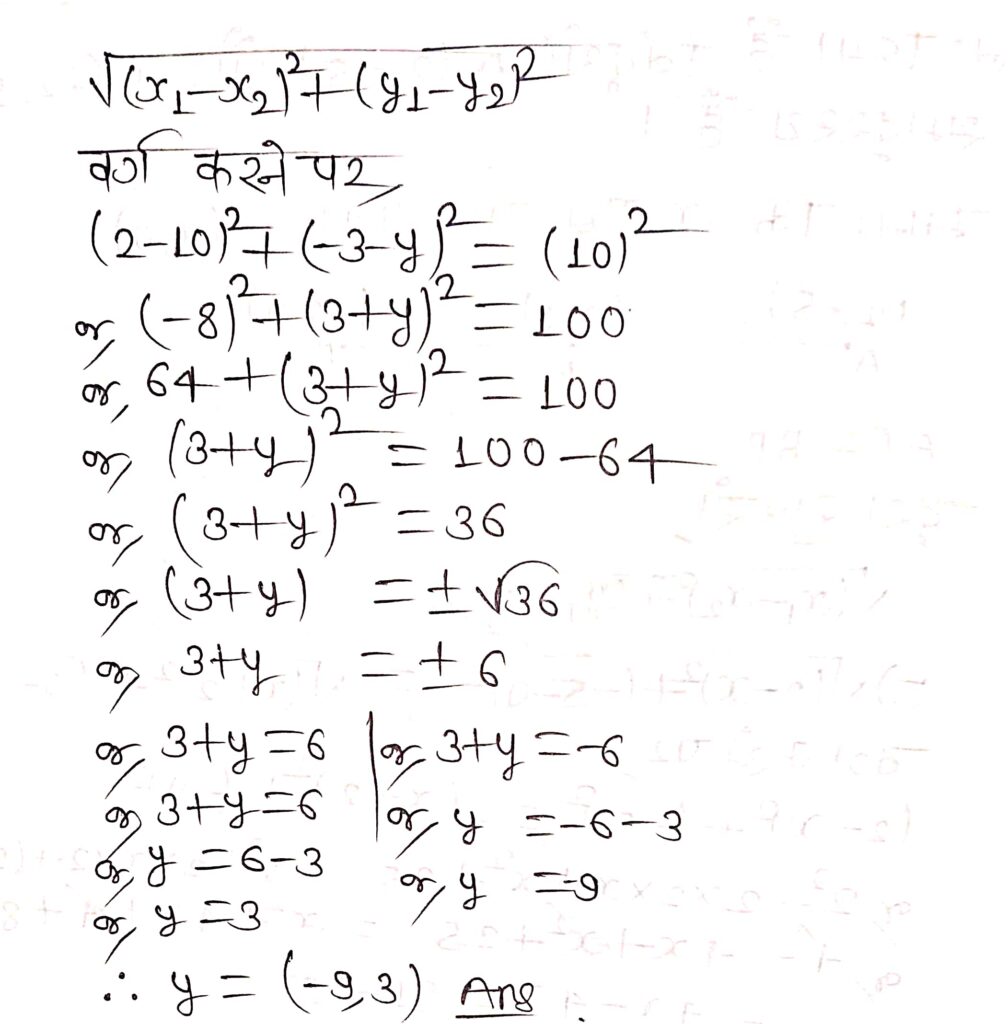 √(x₁-x₂)²+(y₁-y₂)²
वर्ग करने पर,
(2-10)²+(-3-y)² = (10)²
or, (-8)²+(3+y)² = 100
or, 64+(3+y)² = 100
or, (3+y)² = 100-64
or, (3+y)² = 36
or, (3+y) = ±√36
or, 3+y = ±6
or, 3+y=6 | or, 3+y=-6
or, 3+y=6 | or, y =-6-3
or, y =6-3 or, y =-9
or, y =3
∴ y = (-9,3) Ans